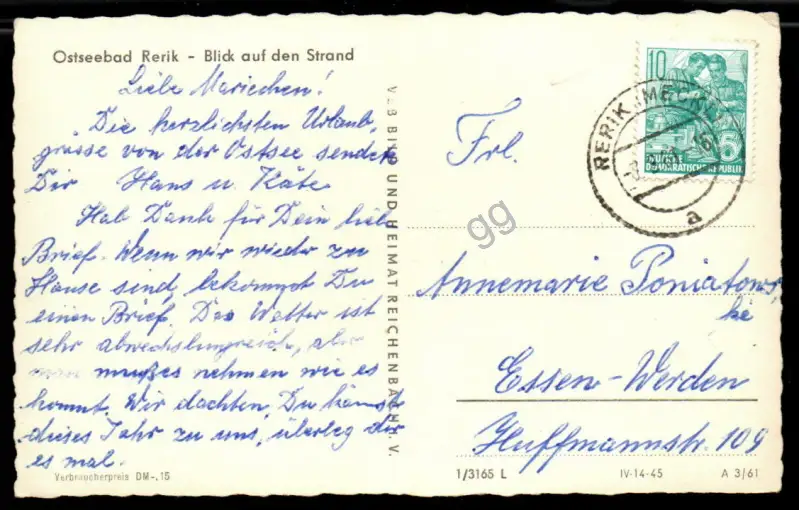 Ostseebad Rerik - Blick auf den Strand
Liebe Mariechen!
Die herzlichsten Urlaub,
grüsse von der Ostsee senden
Dir Hans u. Käte
Hab Dank für Dein lieb
Brief. Wenn wir wieder zu
Hause sind, bekommst Du
einen Brief. Das Wetter ist
sehr abwechslungsreich, aber
man muß es nehmen wie es
kommt. Wir dachten, Du kämst
dieses Jahr zu uns, überleg dir
es mal.
Verbraucherpreis DM -,15
VEB BILD UND HEIMAT REICHENBACH I. V.
10
DEMOKRATISCHE REPUBLIK
RERIK (MECKL
a
gg
Frl.
Annemarie Poniatows,
ke
Essen-Werden
Huffmannstr. 109
1/3165 L
IV-14-45
A 3/61